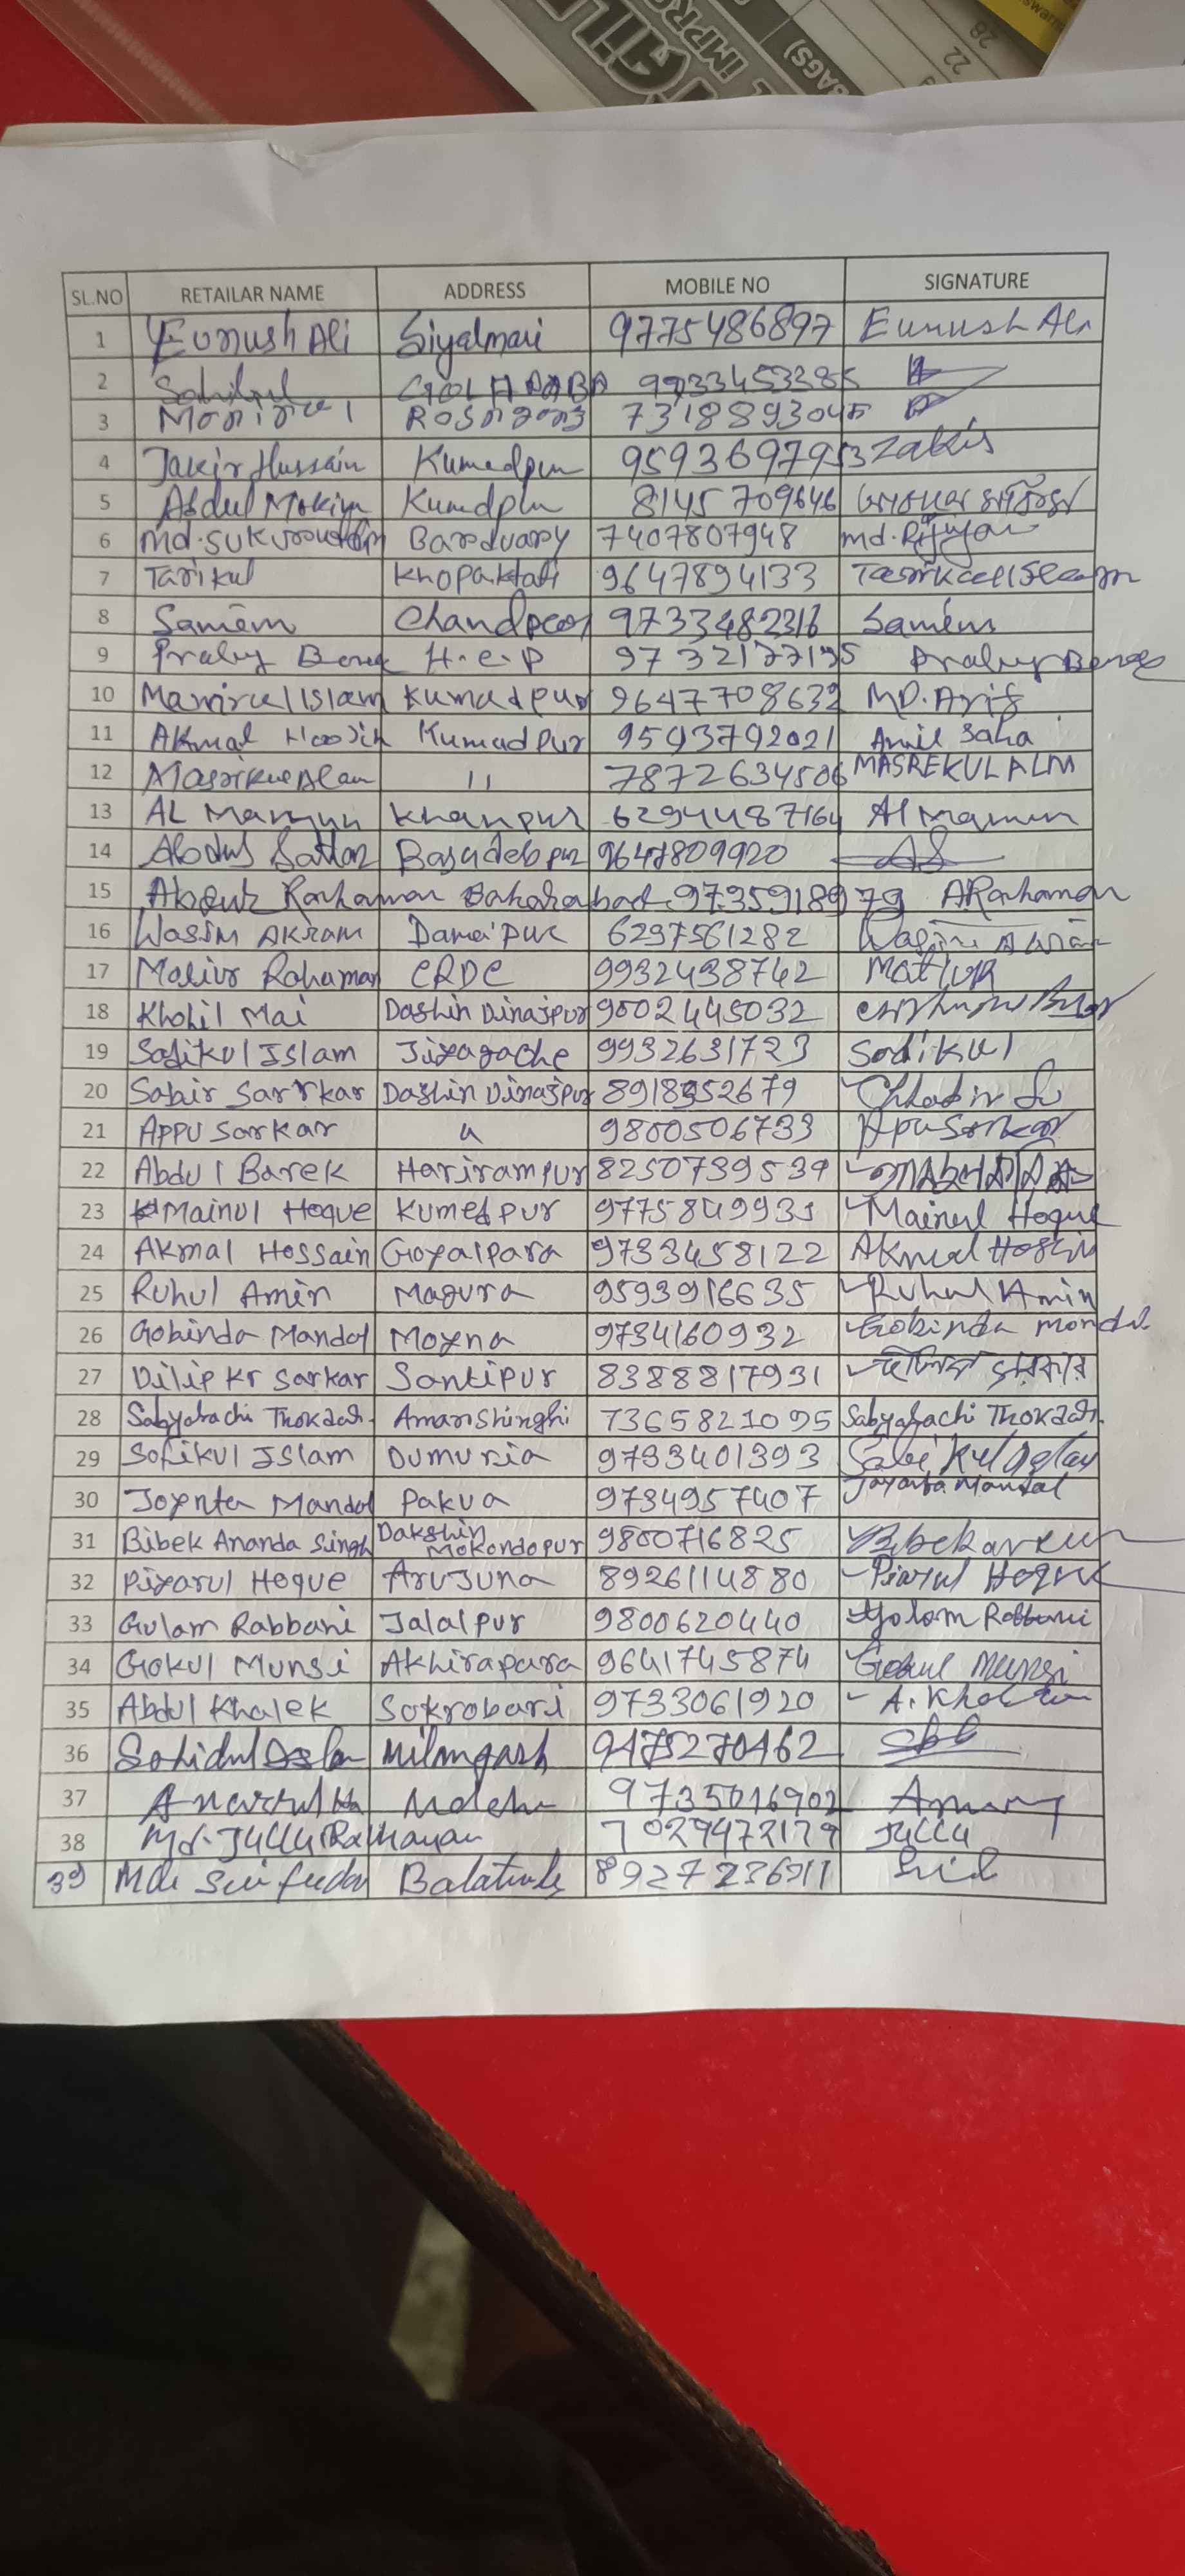 IMPRO
(BAGS)
22
28
SL.NO RETAILAR NAME ADDRESS MOBILE NO SIGNATURE
1 Eunush Ali Siyalmari 9775486897 Eunush Ali
2 Sohikul 9933453385
3 Monirul 7318893045
4 Jakir Hussain Kumedpur 9593697953 Zakir
5 Abdul Mokiyn Kumdpur 8145709646
6 Barduary 7407807948
7 Tarikul Khopakati 9647894133
8 Samim Chandpur 9733482316 Samim
9 H.C.P 9732177195
10 Manirul Islam Kumadpur 9647708632 MD. Arif
11 Akmal Kumadpur 9593792021 Amil Saha
12 Masrikul Alam 11 7872634506 MASREKUL ALM
13 AL Mamun Khanpur 6294487164 Al Mamun
14 Abdus Sattar Basudebpur 9647809920 AS
15 Abdur Rahaman Bahadurabad 9735918979 ARahaman
16 Wasim AKRAM 6297561282 Wasim Akram
17 Motiur Rahaman CRDC 9932438742 Matiur
18 Kholil Mai Dashin Dinajpur 9002445032
19 Sofikul Islam Jiyagache 9932631723 Sodikul
20 Sabir Sarrkar Dashin Dinajpur 8918952679
21 Appu Sarkar 11 9800506733 Apu Sarkar
22 Abdul Barek Harirampur 8250739539
23 Mainul Hoque Kumedpur 9775849931 Mainul Hoque
24 Akmal Hossain Goyalpara 9733458122 Akmal Hossin
25 Ruhul Amin Magura 9593916635 Ruhul Amin
26 Gobinda Mandol Moyna 9734160932 Gobinda mondal
27 Dilip Kr Sarkar Santipur 8388817931 দিলিপ সরকার
28 Sabyabachi Thokdar. Amarshinghi 7365821095 Sabyabachi Thokdar.
29 Sofikul Islam Dumuria 9733401393
30 Joynta Mandol Pakua 9734957407 Jayanta Mandal
31 Bibek Ananda Singh Dakshin Mokondopur 9800716825
32 Piyarul Hoque Arujuna 8926114880 Piarul Hoque
33 Gulam Rabbani Jalalpur 9800620440 Golam Rabbani
34 Gokul Munsi Akhirapara 9641745874 Gokul Munsi
35 Abdul Khalek Sokrobari 9733061920
36 Sohidul Islam Milangarh 9475270462
37 9735016902
38 Md. Jullu Rahaman 7029472179 Jullu
39 8927236911